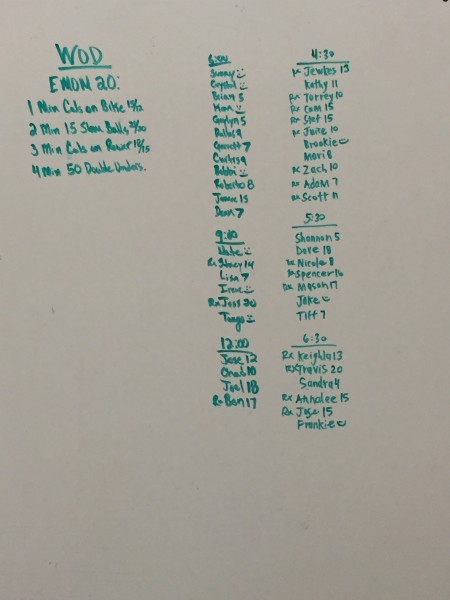 WOD
EMOM 20:
1 Min Cals on Bike 15/12
2 Min 15 Slam Balls
3 Min Cals on Rower 18/15
4 Min 50 Double Unders.
6:00
Sunny
Crystal
Brian 5
Gaylyn 5
Dallas 9
Garrett 7
Curtis 9
Bobbi
Roberto 8
15
Dean 7
9:00
Nate
Rx Stacy 14
Lisa 7
Irene
Rx Jess 20
12:00
Jose 12
10
Joel 18
Rx Ben 17
4:30
Rx Jewkes 13
Kathy 11
Rx Torrey 10
Rx Cam 15
Rx Stet 15
Rx 10
Brookie
Mari 8
Rx Zach 10
Rx Adam 7
Rx Scott 11
5:30
Shannon 5
Dave 18
Rx Nicole 8
Rx Spencer 16
Rx Mason 17
Jake
Tiff 7
6:30
Rx Keighla 13
Rx Travis 20
Sandra 4
Rx Annalee 15
Rx Jose 15
Frankie